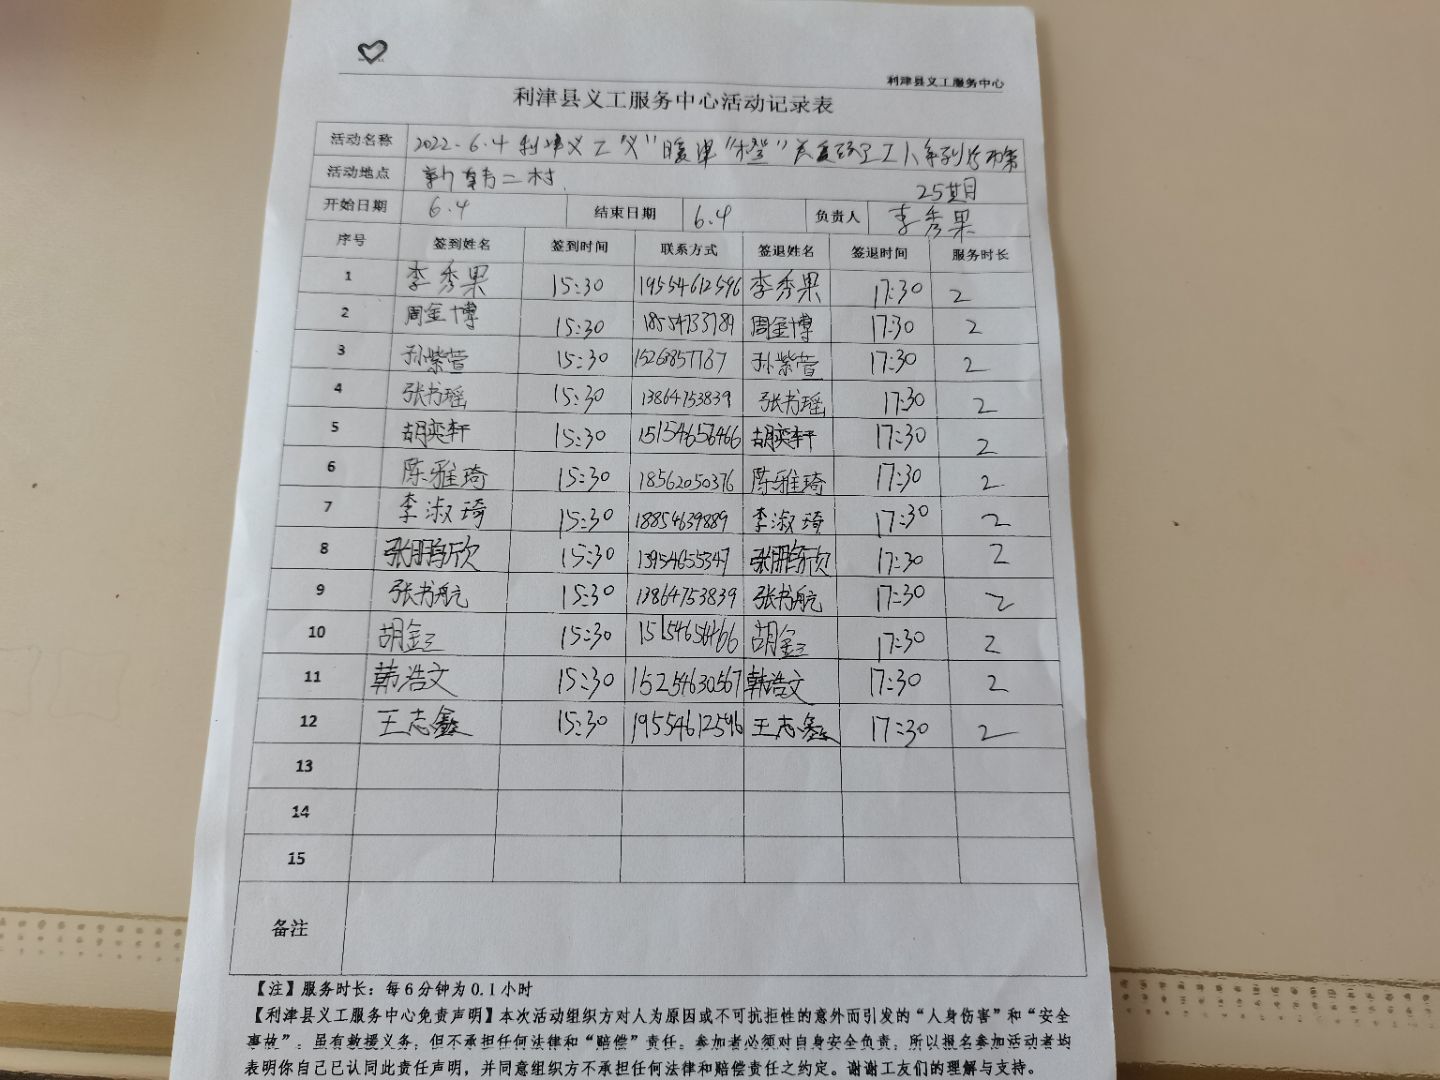 利津县义工服务中心
利津县义工服务中心活动记录表
活动名称 2022.6.4利津义工"义"暖津"橙"关爱环卫工人系列活动第
25期
活动地点 新韩二村
开始日期 6.4 结束日期 6.4 负责人 李秀果
序号 签到姓名 签到时间 联系方式 签退姓名 签退时间 服务时长
1 李秀果 15:30 19554612596 李秀果 17:30 2
2 周金博 15:30 18554733789 周金博 17:30 2
3 孙紫萱 15:30 孙紫萱 17:30 2
4 张书瑶 15:30 13864753839 张书瑶 17:30 2
5 胡奕轩 15:30 15154656466 胡奕轩 17:30 2
6 陈雅琦 15:30 18562050376 陈雅琦 17:30 2
7 李淑琦 15:30 18854639889 李淑琦 17:30 2
8 张鹏欣 15:30 13954655347 张鹏欣 17:30 2
9 张书航 15:30 13864753839 张书航 17:30 2
10 胡金三 15:30 15154656466 胡金三 17:30 2
11 韩浩文 15:30 15254630567 韩浩文 17:30 2
12 王志鑫 15:30 19554612596 王志鑫 17:30 2
13
14
15
备注
【注】服务时长：每6分钟为0.1小时
【利津县义工服务中心免责声明】本次活动组织方对人为原因或不可抗拒性的意外而引发的“人身伤害”和“安全
事故”，虽有救援义务，但不承担任何法律和“赔偿”责任。参加者必须对自身安全负责，所以报名参加活动者均
表明你自己已认同此责任声明，并同意组织方不承担任何法律和赔偿责任之约定。谢谢工友们的理解与支持。